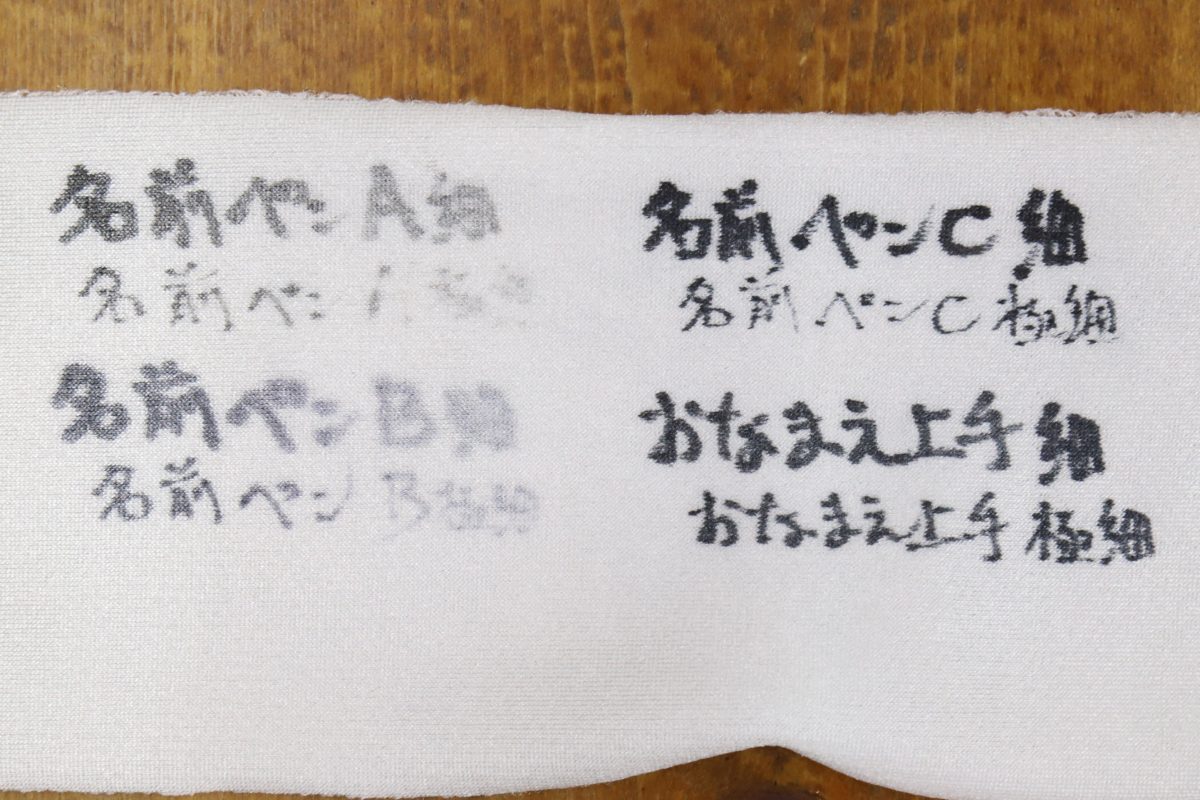 名前ペン A 細
名前ペン A 極細
名前ペン B 細
名前ペン B 極細
名前ペン C 細
名前ペン C 極細
おなまえ上手 細
おなまえ上手 極細